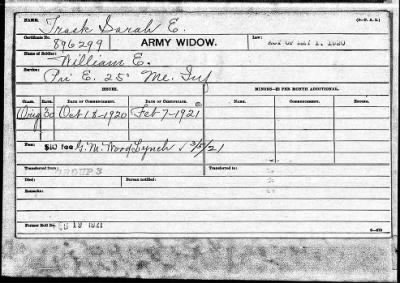 NAME: Trask Sarah E. (3-P. A. G.)
Certificate No. 896299 ARMY WIDOW. Law: Act of May 1, 1920
Name of Soldier: William E.
Service: Pvt E. 25" Me. Inf
ISSUES. MINORS—$2 PER MONTH ADDITIONAL.
CLASS. RATE. DATE OF COMMENCEMENT. DATE OF CERTIFICATE. NAME. COMMENCEMENT. EXPIRED.
Orig 30 Oct 18-1920 Feb 7-1921
Fees: $10 fee G. M. Wood Lynch 3/5/21
Transferred from: GROUP 3 Transferred to:
Died: Bureau notified:
Remarks:
Former Roll No. FEB 19 1921